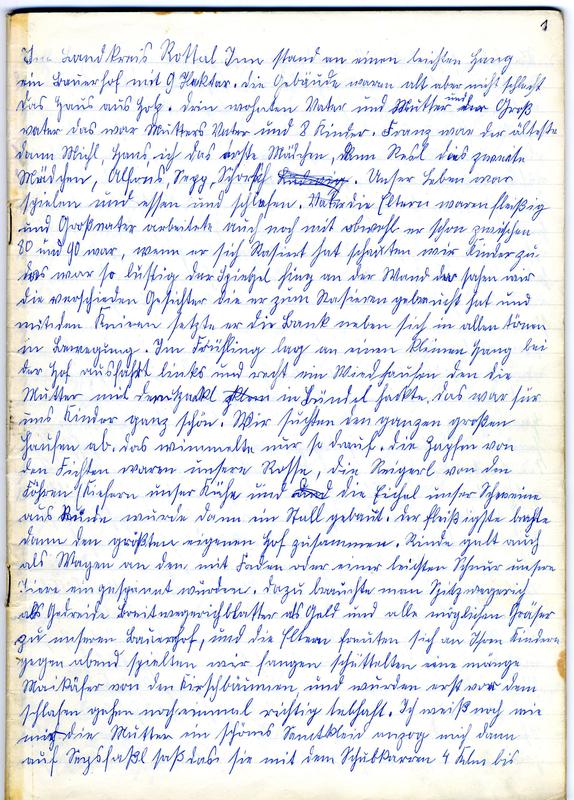 1
Im Landkreis Rottal Inn stand an einen leichten Hang
ein Bauerhof mit 9 Hektar. die Gebäude waren alt aber nicht schlecht
das Haus aus Holz. drin wohnten Vater und Mutter und der Groß
vater das war Mutters Vater und 8 Kinder. Franz war der älteste
dann Michl, Hans, ich das erste Mädchen, dann Resl das zweite
Mädchen, Alfons, Sepp, Schorsch Ludwig. Unser Leben war
spielen und essen und schlafen. Vater die Eltern waren fleißig
und Großvater arbeitete auch noch mit obwohl er schon zwischen
80 und 90 war, wenn er sich Rasiert hat schauten wir Kinder zu
das war so lustig der Spiegel hing an der Wand da sahen wir
die verschieden Gesichter die er zum Rasieren gebraucht hat und
mit den Knieen setzte er die Bank neben sich in allen tönen
in Bewegung. Im Frühling lag an einen kleinen Hang bei
der Hof ausfahrt links und recht ein Wiedhaufen den die
Mutter mit den in Bündel hackte. das war für
uns Kinder ganz schön. Wir suchten den ganzen großen
Haufen ab. das wimmelte nur so drauf. die Zapfen von
den Fichten waren unsere Rosse, die Neigerl von den
Föhren (Kiefern unser Kühe und die Eichel unser Schweine
aus Rinde wurde dann ein Stall gebaut. der fleißigste brachte
dann den größten eigenen Hof zusammen. Rinde galt auch
als Wagen an den mit Faden oder einer leichten Schnur unsere
Tiere eingespannt wurden. dazu brauchte man Spitzwegerich
als Gedreide Breitwegerichblätter als Geld und alle möglichen Gräser
zu unseren Bauernhof, und die Eltern freuten sich an Ihren Kindern
gegen abend spielten wir fangen schüttelten eine mänge
Maikäfer von den Kirschbäumen und wurden erst vor dem
schlafen gehen noch einmal richtig lebhaft. Ich weiß noch wie
mir die Mutter ein schönes Samtkleid anzog mich dann
auf saß das sie mit dem Schubkarren 4 Klm bis